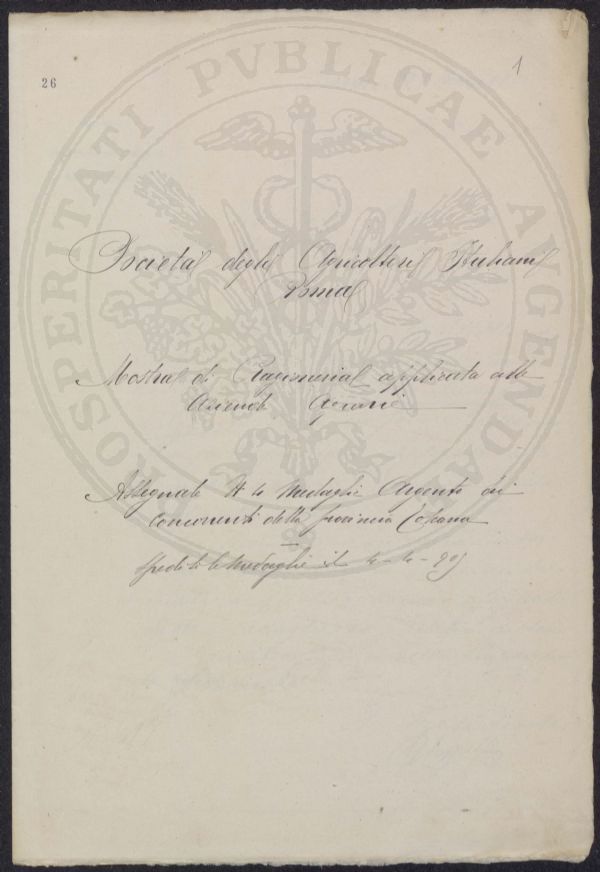 26
1
PROSPERITATI PVBLICAE AVGENDAE
Società degli Agricoltori Italiani
Roma
Mostra di Ragioneria applicata alle
Aziende Agrarie
Assegnate N 4 Medaglie Argento ai
Concorrenti della provincia Toscana
Spedite le Medaglie il 4-4-909